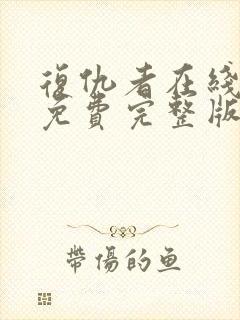 復仇者在綫
免費完整版
帶傷的鱼